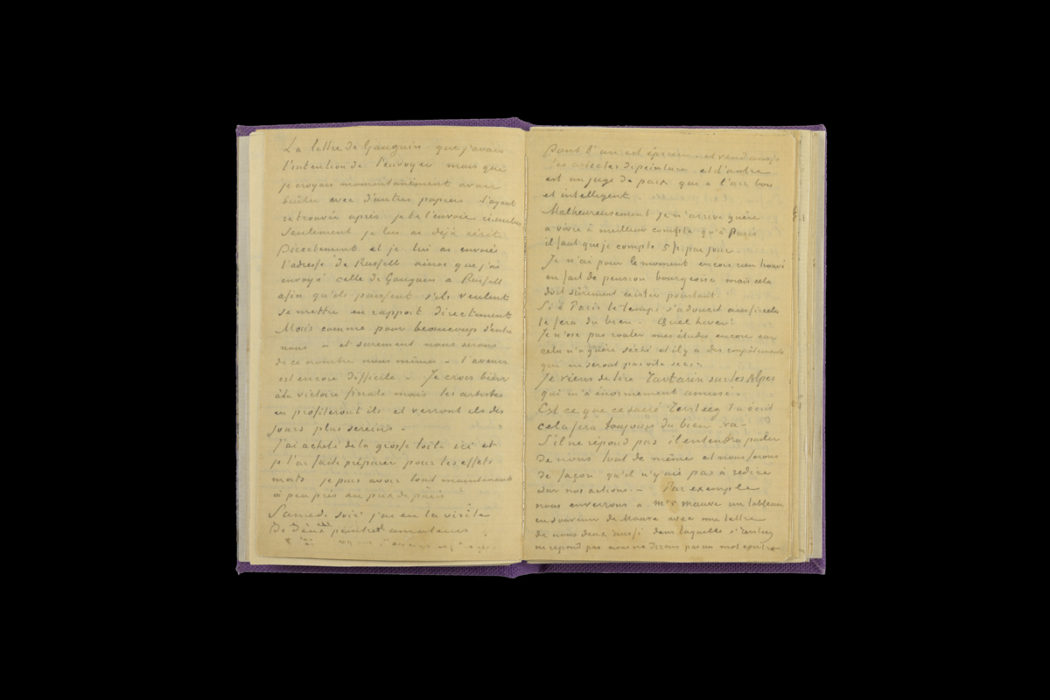 La lettre de Gauguin que j'avais
l'intention de t'envoyer mais que
je croyais momentanément avoir
brûlée avec d'autres papiers l'ayant
retrouvée après je te l'envoie
Seulement je lui ai déjà écrit
directement et je lui ai envoyé
l'adresse de Russell ainsi que j'ai
envoyé celle de Gauguin a Russell
afin qu'ils puissent s'ils veulent
se mettre en rapport directement
Mais comme pour beaucoup d'entre
nous – et surement nous serons
de ce nombre nous mêmes – l'avenir
est encore difficile – Je crois bien
à la victoire finale mais les artistes
en profiteront ils et verront ils des
jours plus sereins –
J'ai acheté de la grosse toile ici et
je l'ai fait préparer pour les effets
mats je puis avoir tout maintenant
à peu près au prix de paris
Samedi soir j'ai eu la visite
De deux peintres amateurs
Dont l'un est épicier – et vend aussi
des articles de peinture et d'autre
est un juge de paix qui a l'air bon
et intelligent
Malheureusement je n'arrive guère
a vivre à meilleur compte qu'à Paris
il faut que je compte 5 fr. par jour
Je n'ai pour le moment encore rien trouvé
en fait de pension bourgeoise mais cela
doit sûrement exister pourtant
Si à Paris le temps s'adoucit aussi cela
te fera du bien. Quel hiver!
Je n'ose pas rouler mes études encore car
cela n'a guère séché et il y a des empâtements
qui ne seront pas vite secs.
Je viens de lire Tartarin sur les Alpes
qui m'a énormément amusé.
Est ce que ce sacré Tersteeg t'a écrit
cela fera toujours du bien va –
S'il ne répond pas il entendra parler
de nous tout de même et nous ferons
de façon qu'il n'y ait pas à redire
sur nos actions. – Par exemple
nous enverrons a Mme Mauve un tableau
en souvenir de Mauve avec une lettre
de nous deux aussi dans laquelle si Tersteeg
ne répond pas nous ne dirons pas un mot contre